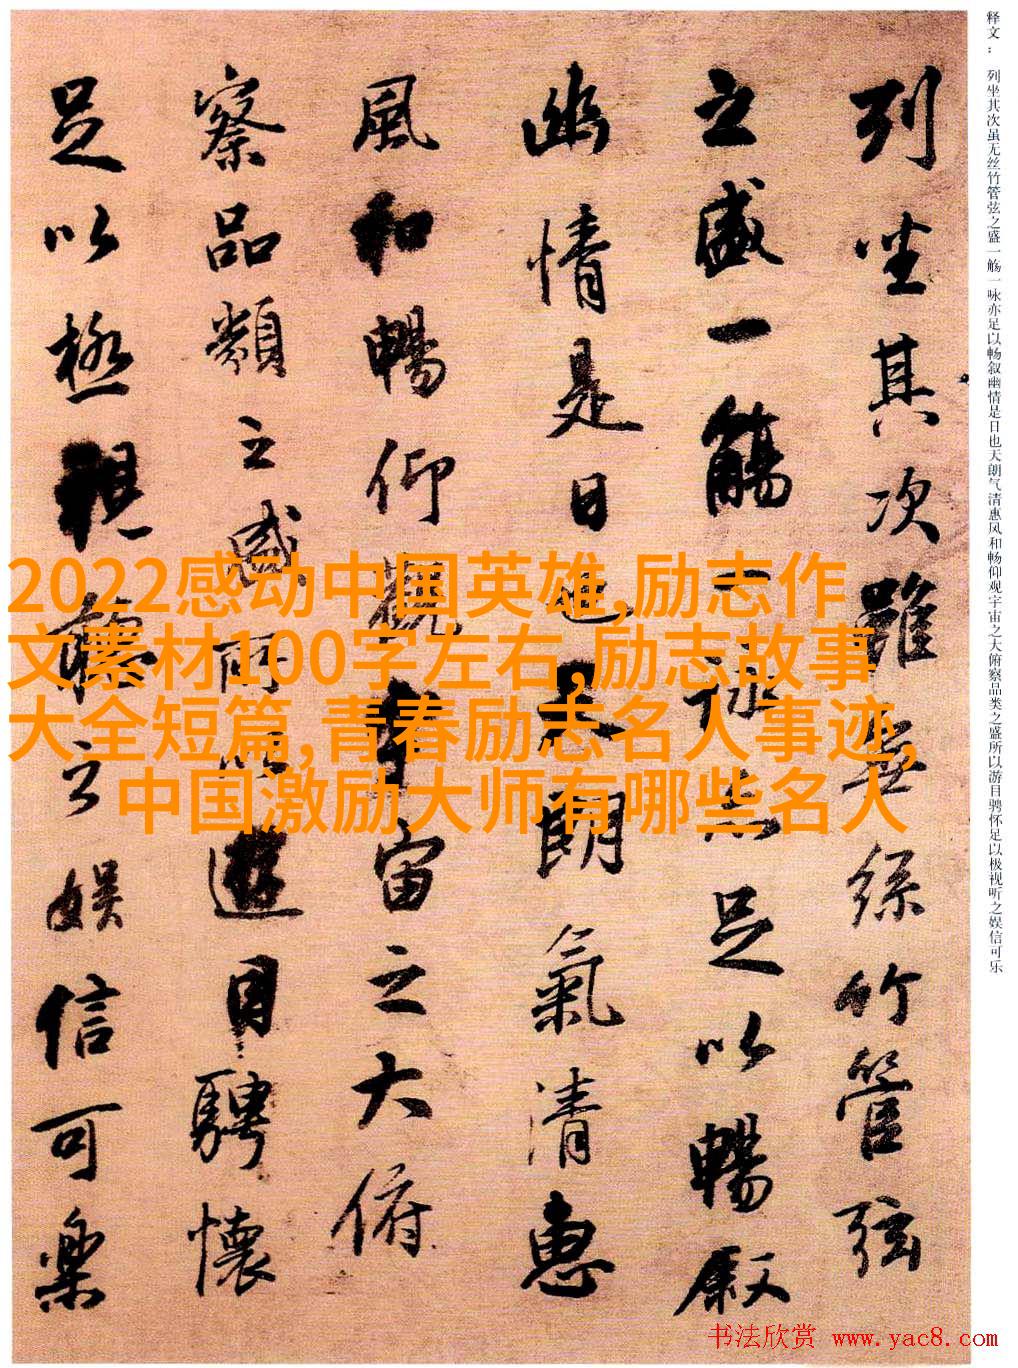 释文： 列坐其次虽无丝竹管弦之盛一觞一咏亦足以畅叙幽情是日也天朗气清惠风和畅仰观宇宙之大俯察品类之盛所以游目骋怀足以极视听之娱信可乐
列坐其次雖無絲竹管弦
之盛一觴一詠亦足以暢叙
幽情是日也天朗氣清惠
風和暢仰觀宇宙之大俯
察品類之盛所以遊目騁懷
足以極視聽之娱信可樂
2022感动中国英雄,励志作
文素材100字左右,励志故事
大全短篇,青春励志名人事迹,
中国激励大师有哪些名人
书法欣赏 www.yac8.com